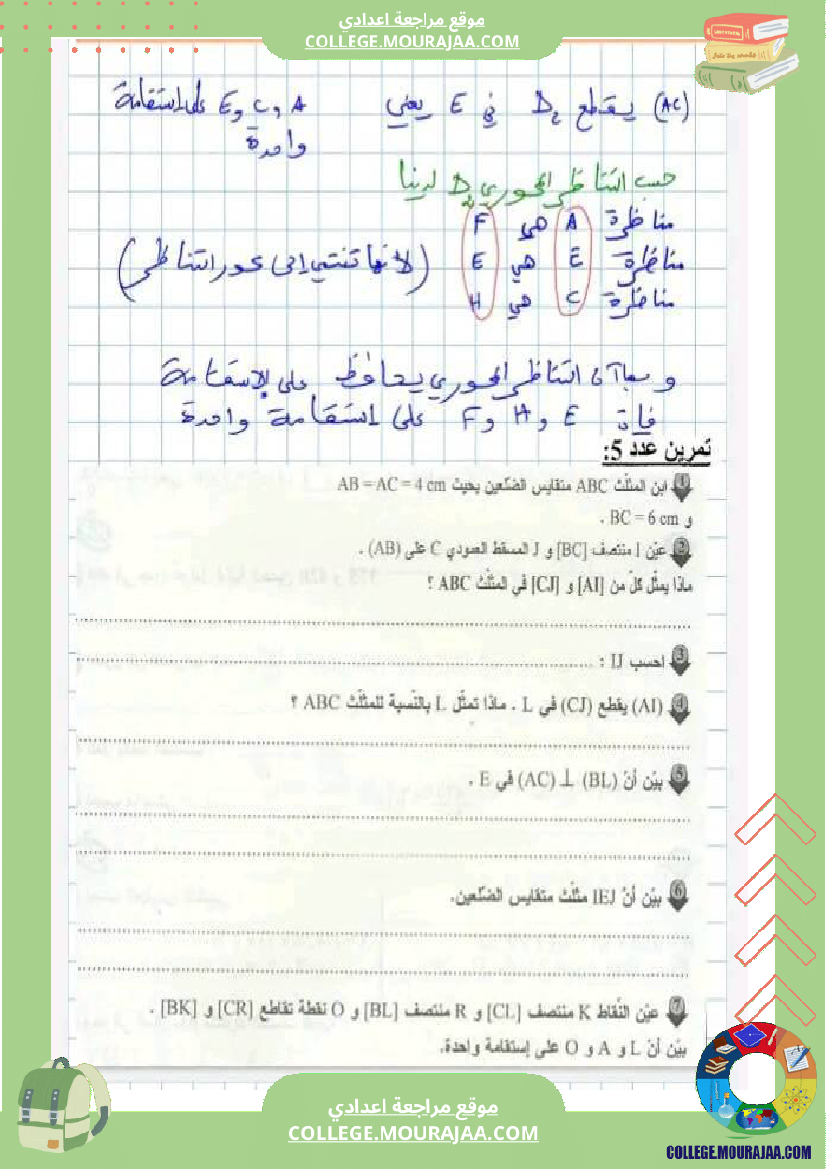 موقع مراجعة اعدادي
COLLEGE.MOURAJAA.COM
(AC) يقطع D₂ في E يعني A و C و E على استقامة
واحدة
حسب التناظر المحوري D₂ لدينا
مناظرة A هي F
مناظرة E هي E (لأنها تنتمي إلى محور التناظر)
مناظرة C هي H
و بما أن التناظر المحوري يحافظ على الاستقامة
فإن E و H و F على استقامة واحدة
تمرين عدد 5:
1 ابن المثلّث ABC متقايس الضلعين بحيث AB = AC = 4 cm
و BC = 6 cm .
2 عيّن I منتصف [BC] و J المسقط العمودي C على (AB) .
ماذا يمثّل كلّ من [AI] و [CJ] في المثلّث ABC ؟
3 احسب IJ :
4 (AI) يقطع (CJ) في L . ماذا تمثّل L بالنّسبة للمثلّث ABC ؟
5 بيّن أنّ (BL) ⊥ (AC) في E .
6 بيّن أنّ IEJ مثلّث متقايس الضّلعين.
7 عيّن النّقاط K منتصف [CL] و R منتصف [BL] و O نقطة تقاطع [CR] و [BK] .
بيّن أنّ L و A و O على إستقامة واحدة.
موقع مراجعة اعدادي
COLLEGE.MOURAJAA.COM
COLLEGE.MOURAJAA.COM